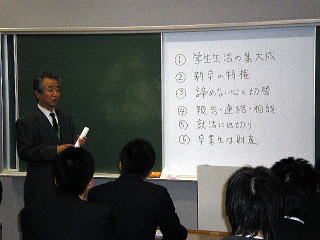 ① 学生生活の集大成
② 新卒の特権
③ 諦めない心と切替
④ 報告・連絡・相談
⑤ 就活に区切り
⑥ 卒業生は財産